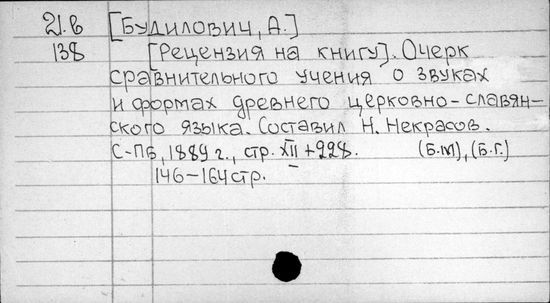 21.в [Будилович, А.]
138 [Рецензия на книгу]. Очерк
сравнительного учения о звуках
и формах древнего церковно-славян-
ского языка. Составил Н. Некрасов.
С-ПБ, 1889 г., стр. XII + 228. (Б.М), (Б.Г.)
146-164 стр.